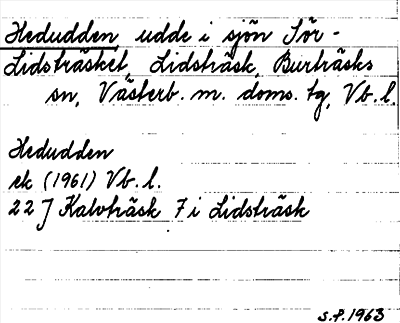 Hedudden, udde i sjön Sör-
Lidsträsket, Lidsträsk, Burträsks
sn, Västerb. m. doms. tg, Vb. l.
Hedudden
ek (1961) Vb. l.
22 J Kalvträsk 7 i Lidsträsk
S.F. 1963